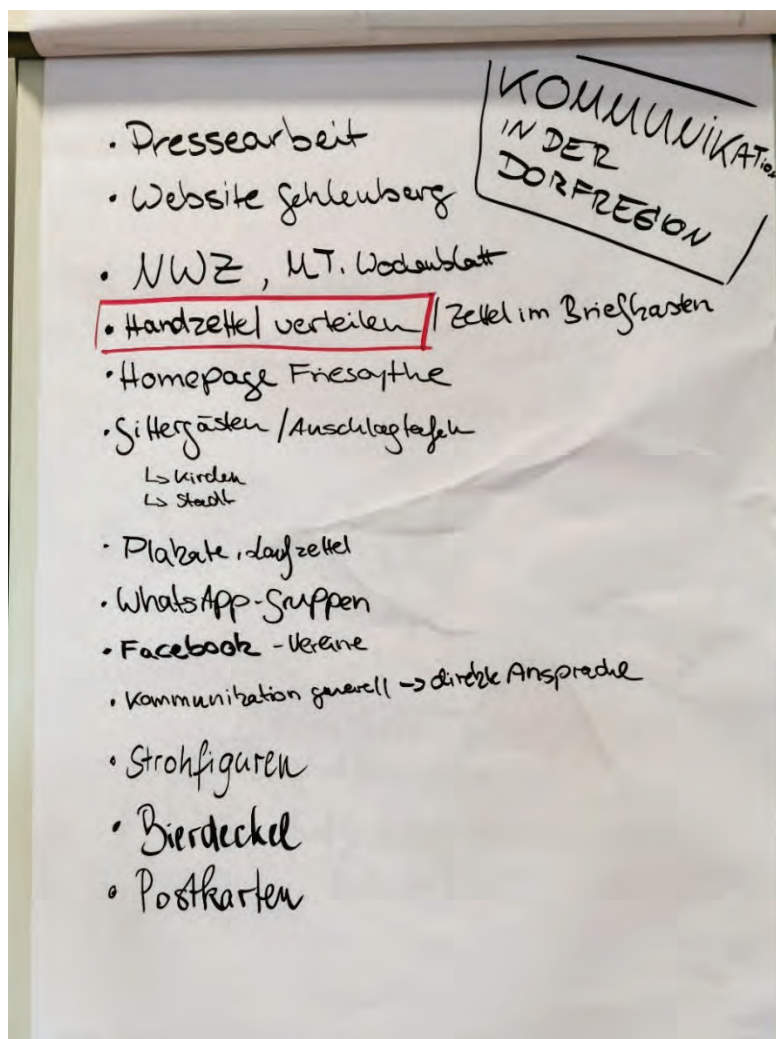 KOMMUNIKATion
IN DER
DORFREGION
• Pressearbeit
• Website Gehlenberg
• NWZ, MT. Wochenblatt
• Handzettel verteilen / Zettel im Briefkasten
• Homepage Friesoythe
• Gitterkästen / Anschlagtafeln
↳ Kirchen
↳ Stadt
• Plakate, Laufzettel
• WhatsApp-Gruppen
• Facebook - Vereine
• Kommunikation generell -> direkte Ansprache
• Strohfiguren
• Bierdeckel
• Postkarten